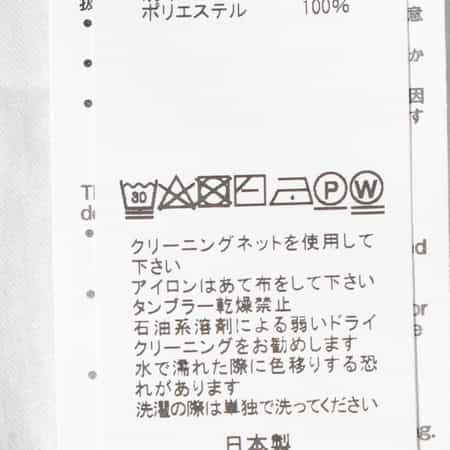 ポリエステル 100%
30 P W
クリーニングネットを使用して
下さい
アイロンはあて布をして下さい
タンブラー乾燥禁止
石油系溶剤による弱いドライ
クリーニングをお勧めします
水で濡れた際に色移りする恐
れがあります
洗濯の際は単独で洗ってください
日本製
意
か
因
す
Th
de
ed
or
e
g.